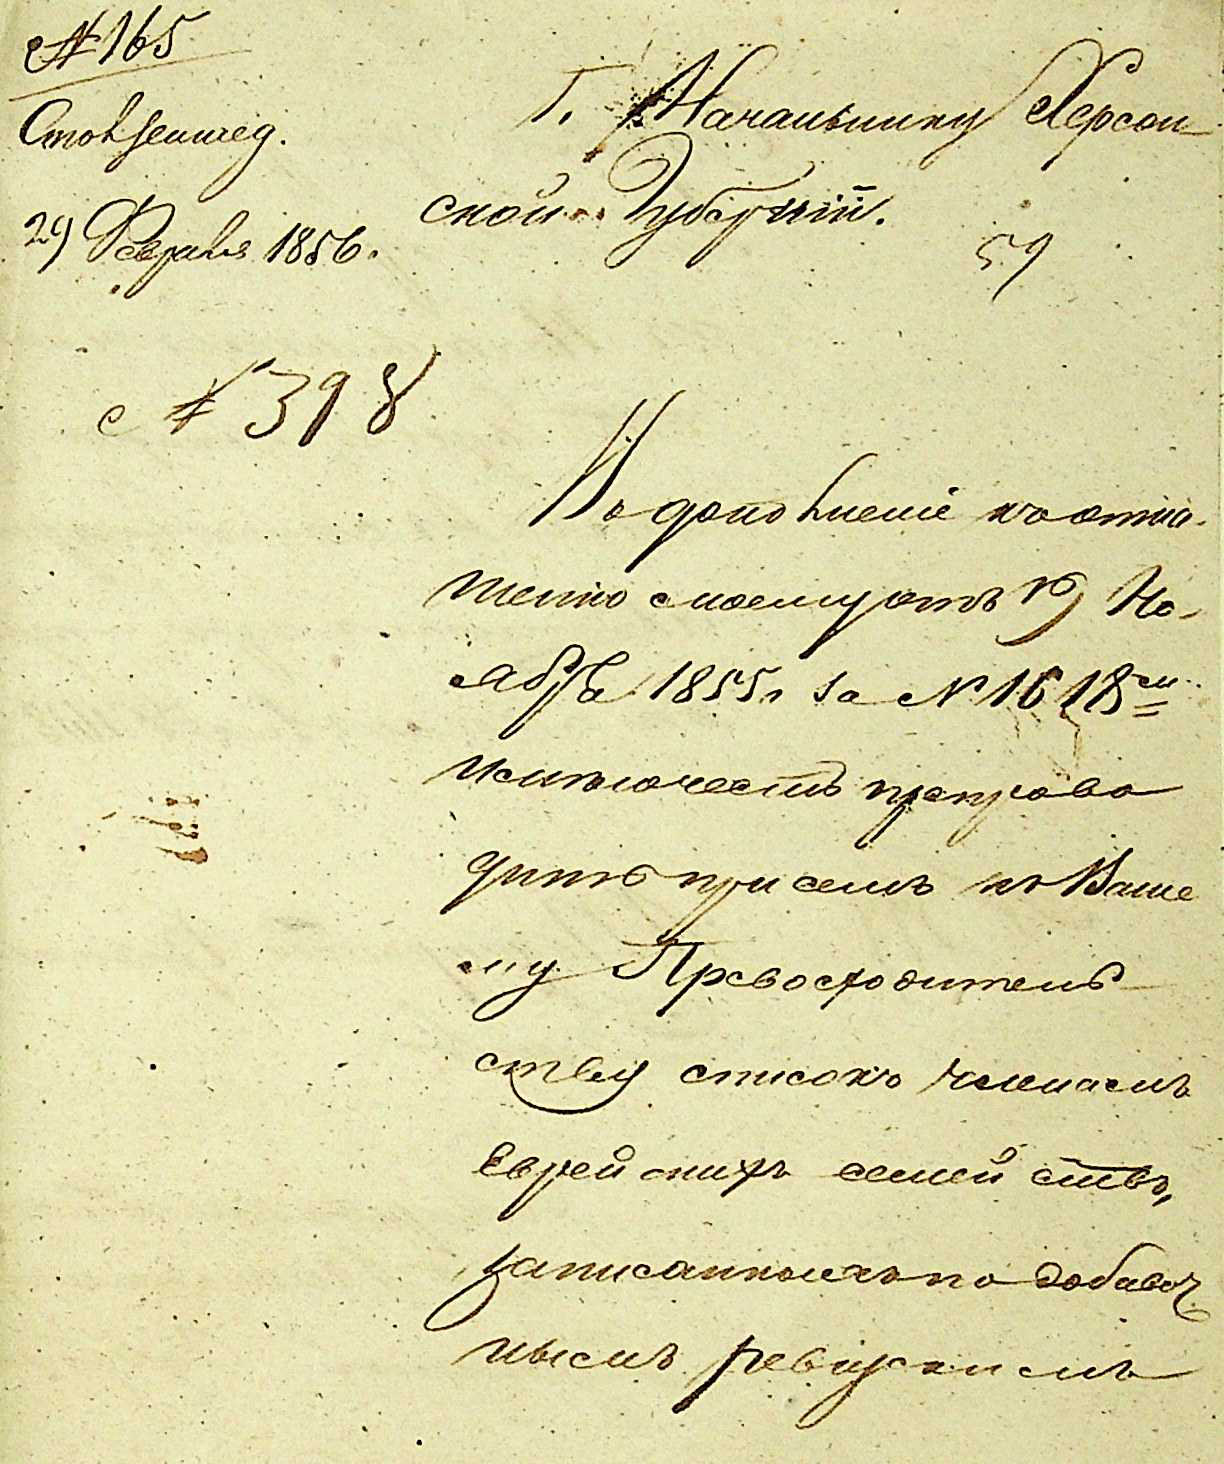 № 165
29 Февраля 1856.
Г. Начальнику Херсон-
ской Губерніи.
59
№ 398
Въ дополненіе къ отно-
шенію моему отъ 19 Но-
ября 1855 г за № 1618мъ
честь препрово
дить при семъ къ Ваше
му Превосходитель
ству списокъ членамъ
Еврейскихъ семействъ,
записанныхъ по добавоч
нымъ ревизскимъ